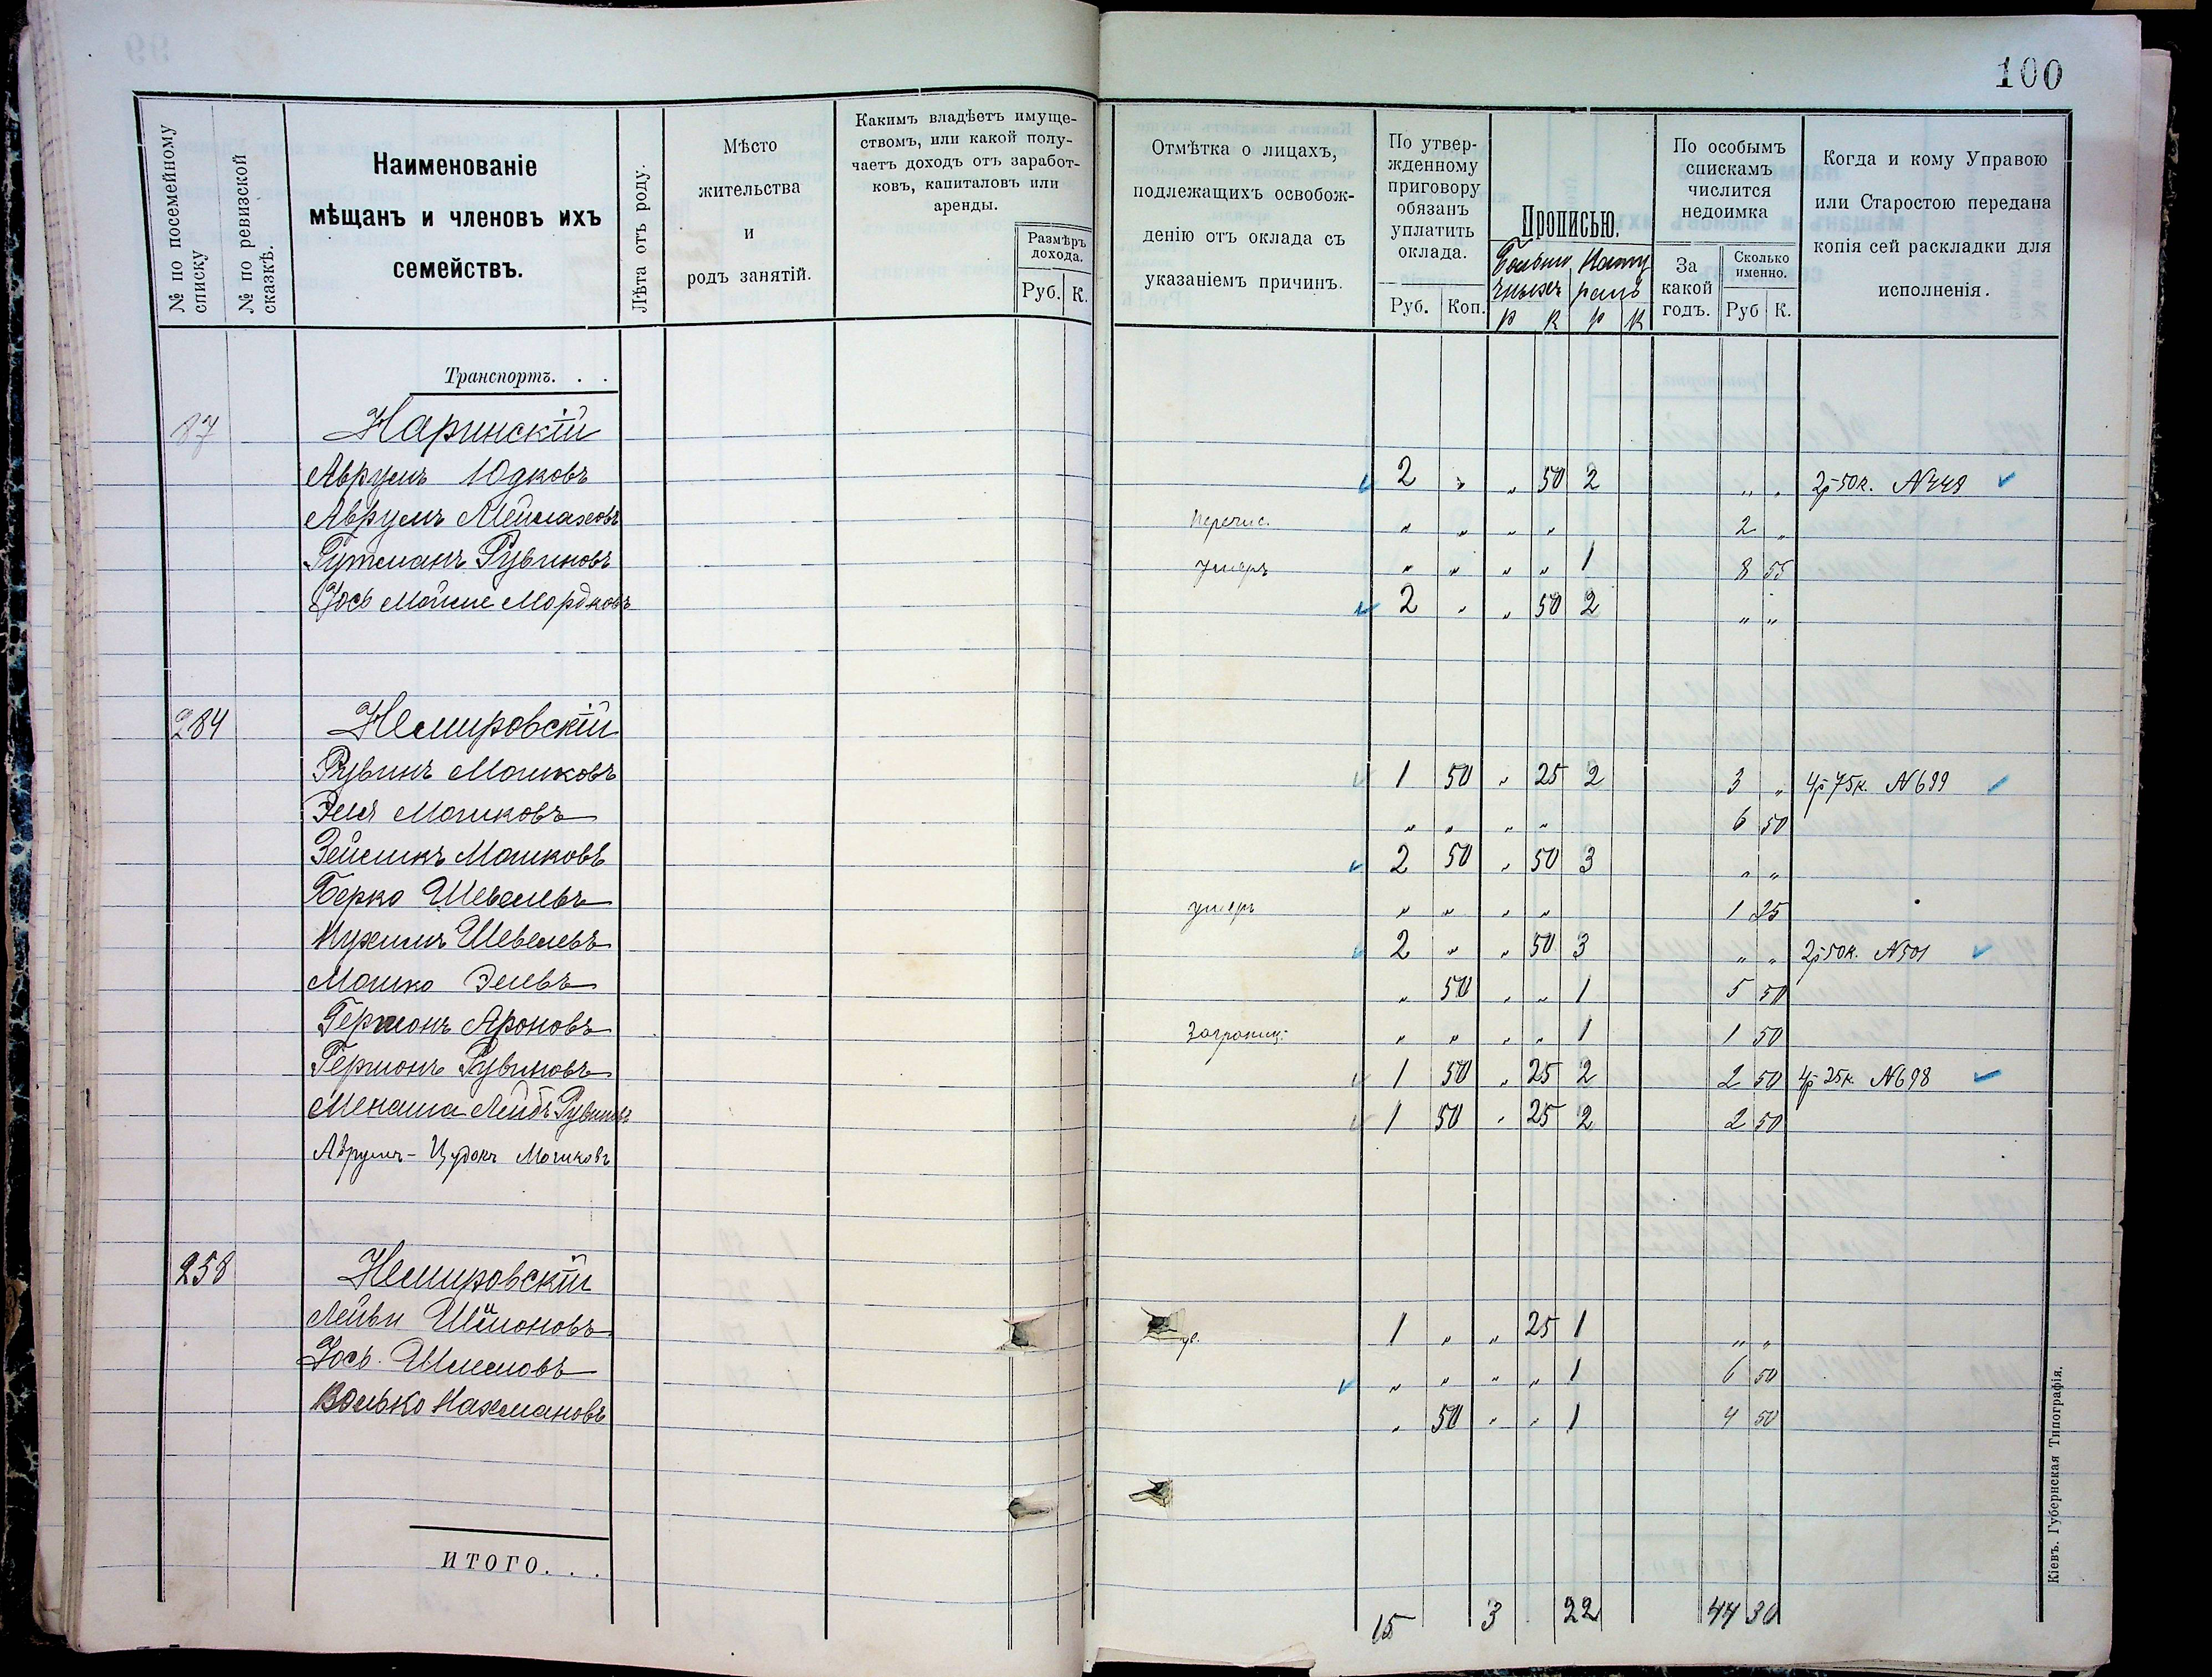 100
№ по посемейному списку
№ по ревизской сказкѣ.
Наименованіе мѣщанъ и членовъ ихъ семействъ.
Лѣта отъ роду.
Мѣсто жительства и родъ занятій.
Какимъ владѣетъ имуществомъ, или какой получаетъ доходъ отъ заработковъ, капиталовъ или аренды.
Размѣръ дохода.
Руб. К.
Отмѣтка о лицахъ, подлежащихъ освобожденію отъ оклада съ указаніемъ причинъ.
По утвержденному приговору обязанъ уплатить оклада.
Руб. Коп.
Прописью.
р к р к
По особымъ спискамъ числится недоимка
За какой годъ.
Сколько именно.
Руб К.
Когда и кому Управою или Старостою передана копія сей раскладки для исполненія.
Транспортъ. . .
87 Наринскій
Аврумъ Юдковъ 2 " " 50 2 " " 2р50к. №448
Аврумъ Меймаховъ перечис. " " " " 2 "
Гутманъ Рувиновъ умеръ " " " " 1 8 55
Іось Мойше Мордковъ 2 " " 50 2 " "
284 Немировскій
Рувинъ Мошковъ 1 50 " 25 2 3 " 4р75к. №699
Эля Мошковъ " " " " 6 50
Зейликъ Мошковъ 2 50 " 50 3 " "
Берко Шевелевъ умеръ " " " " 1 25
Нухимъ Шевелевъ 2 " " 50 3 " " 2р50к. №501
Мошко Элевъ " 50 " " 1 5 50
Гершонъ Ароновъ Заграниц: " " " " 1 1 50
Гершонъ Рувиновъ 1 50 " 25 2 2 50 4р25к №698
Менаша Лейбъ Рувиновъ 1 50 " 25 2 2 50
Аврумъ-Цудокъ Мошковъ
258 Немировскій
Лейви Шимоновъ 1 " " 25 1 " "
Іось Шмеловъ " " " " 1 6 50
Волько Нахмановъ " 50 " " 1 4 50
ИТОГО. . .
15 3 22 44 30
Кіевъ. Губернская Типографія.